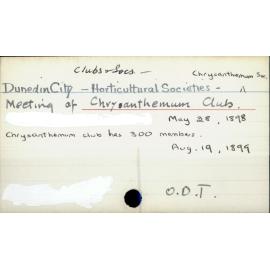 Clubs & Socs -
Chrysanthemum Soc.
Dunedin City - Horticultural Societies - ^
Meeting of Chrysanthemum Club.
May 28, 1898
Chrysanthemum club has 300 members.
Aug. 19, 1899
O.D.T.